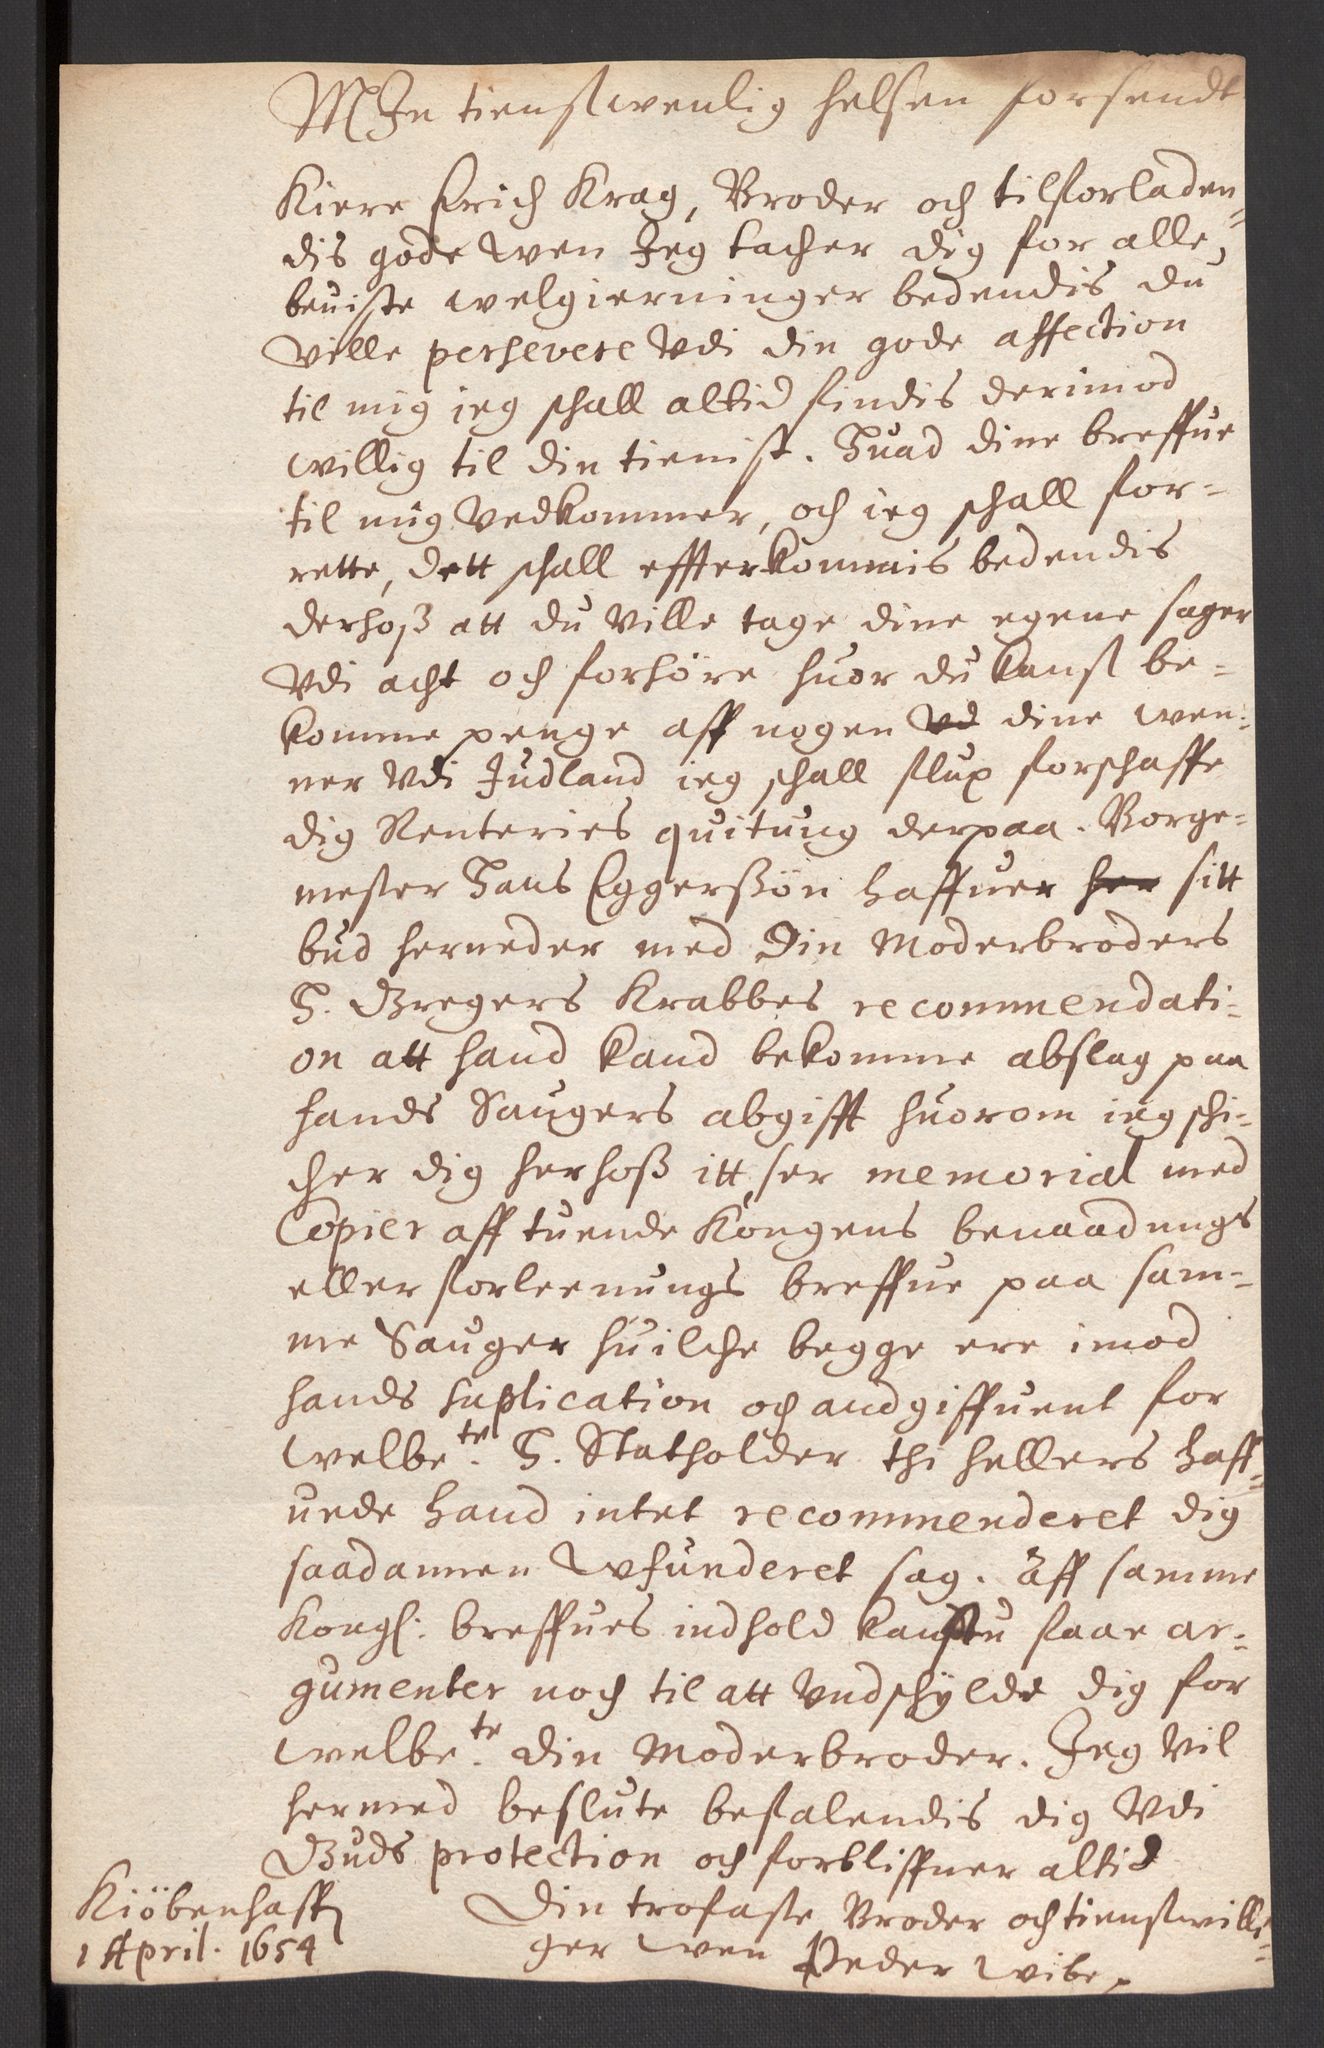 MIn tienstwenlig helsen forsendt
Kiere Erich Krag, Broder och tilforladen¬
dis gode wen Jeg tacher dig for alle
beuiste welgierninger bedendis du
ville persevere Vdi din gode affection
til mig ieg schall altid findis derimod
willig til din tienist. Huad dine breffue
til mig Vedkommer, och ieg schall for¬
rette, dett schall effterkommis bedendis
derhoß att du Ville tage dine egene sager
Vdi acht och forhøre huor du kanst be¬
komme penge aff nogen Vd dine wen¬
ner Vdi Judland ieg schall flux forschaffe
dig Renteries quitung derpaa. Borge¬
mester Hans Eggerßøn haffuer her sitt
bud herneder med Din Moderbroders
H. Gregers Krabbes recommendati¬
on att hand kand bekomme afslag paa
hands Saugers abgifft huorom ieg schi¬
cher dig herhoß itt ser memorial med
Copier aff tuende Kongens benaadnngs
eller forleenungs breffue paa sam¬
me Sauger huilche begge ere imod
hands suplication och andgiffuent for
welbete. H. Statholder thi hellers haff¬
uede hand intet recommenderet dig
saadannen Wfunderet sag. Aff samme
Kongl: breffues indhold kanstu faae ar¬
gumenter noch til att Vndschylde dig for
welbete. din Moderbroder. Jeg Vil
hermed beslute befalendis dig Vdi
Guds protection och forbliffuer altid
Din trofaste Broder och tienstwilli¬
ger wen Peder Wibe
Kiöbenhaffn
1 April. 1654